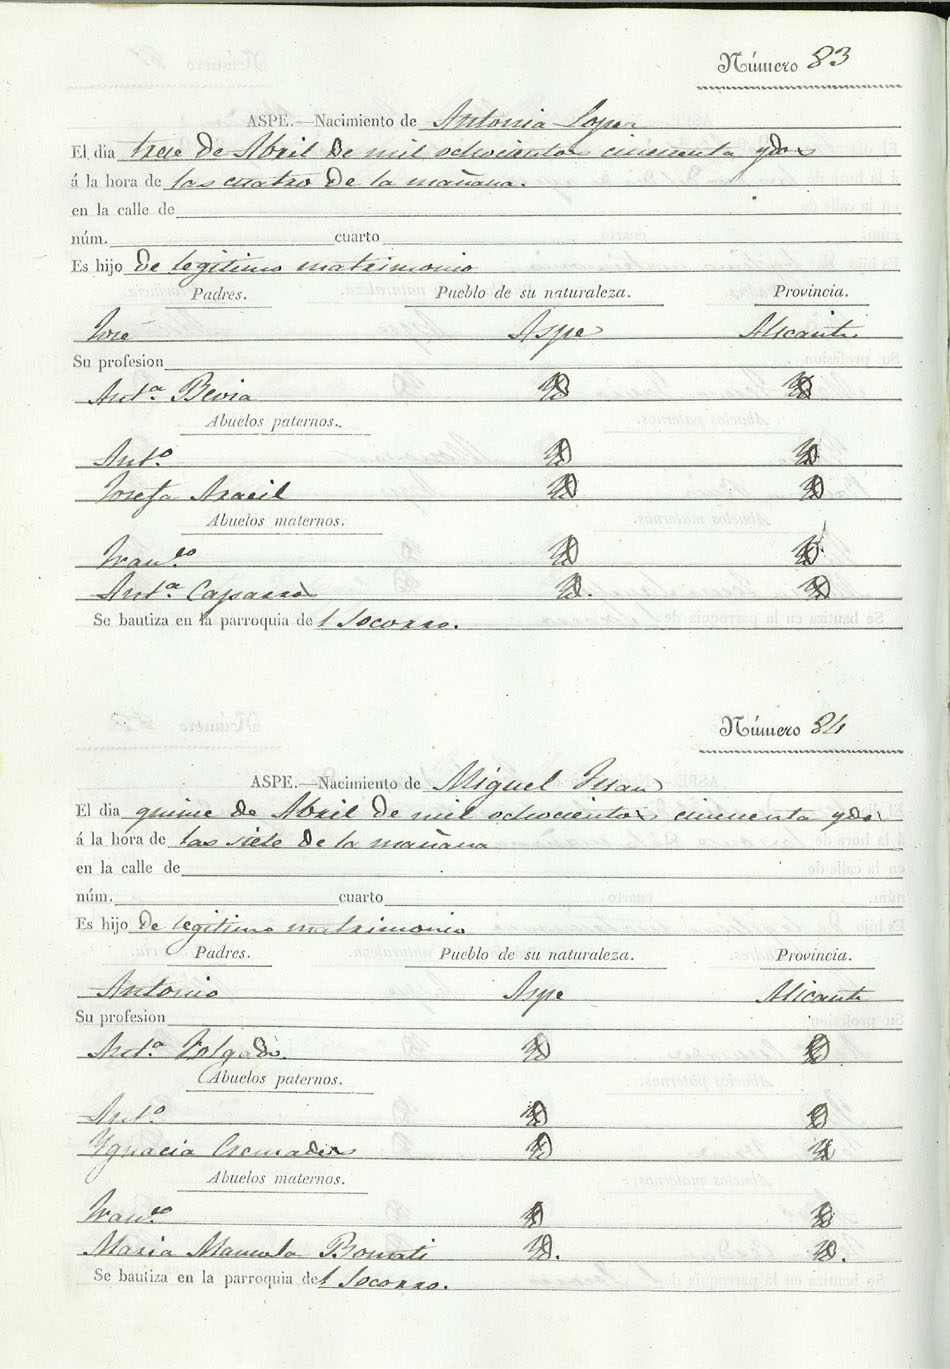 Número 83
ASPE.—Nacimiento de Antonia Lopez
El dia trece de Abril de mil ochocientos cincuenta y dos
á la hora de las cuatro de la mañana.
en la calle de
núm. cuarto
Es hijo de legitimo matrimonio
Padres. Pueblo de su naturaleza. Provincia.
José Aspe Alicante
Su profesion
Antª Bevia
Abuelos paternos.
Antº
Josefa Aracil
Abuelos maternos.
Franco
Antª Caparros
Se bautiza en la parroquia del Socorro.
Número 84
ASPE.—Nacimiento de Miguel Juan
El dia quince de Abril de mil ochocientos cincuenta y dos
á la hora de las siete de la mañana
en la calle de
núm. cuarto
Es hijo de legitimo matrimonio
Padres. Pueblo de su naturaleza. Provincia.
Antonio Aspe Alicante
Su profesion
Antª
Abuelos paternos.
Antº
Ygnacia Cremades
Abuelos maternos.
Franco
Maria Manuela
Se bautiza en la parroquia del Socorro.